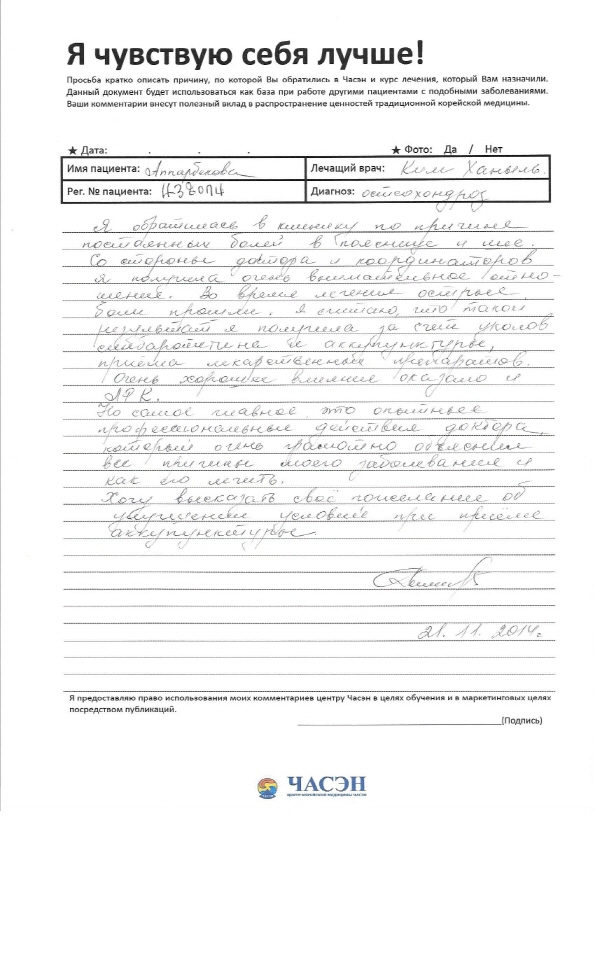 Я чувствую себя лучше!
Просьба кратко описать причину, по которой Вы обратились в Часэн и курс лечения, который Вам назначили.
Данный документ будет использоваться как база при работе другими пациентами с подобными заболеваниями.
Ваши комментарии внесут полезный вклад в распространение ценностей традиционной корейской медицины.
★ Дата: . . . ★ Фото: Да / Нет
Имя пациента: Аппарбекова Лечащий врач: Ким Ханыль.
Рег. № пациента: Диагноз: остеохондроз
Я обратилась в клинику по причине
постоянных болей в пояснице и шее.
Со стороны доктора и координаторов
я получила очень внимательное отно-
шение. Во время лечения острые
боли прошли. Я считаю, что такой
результат я получила за счет уколов
и аккупунктуры,
приёма лекарственных препаратов.
Очень хорошее влияние оказало и
ЛФК.
Но самое главное это опытные
профессиональные действия доктора,
который очень грамотно объяснил
все причины моего заболевания и
как его лечить.
Хочу высказать своё пожелание об
улучшении условий при приёме
аккупунктуры.
21.11.2014г.
Я предоставляю право использования моих комментариев центру Часэн в целях обучения и в маркетинговых целях
посредством публикаций.
(Подпись)
ЧАСЭН